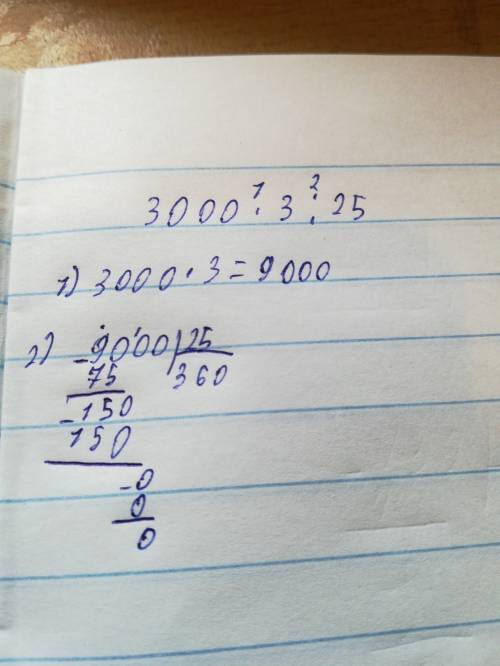 3000 · 3 : 25
1 2
1) 3000 · 3 = 9000
2) - 9000 | 25
75 360
- 150
150
- 0
0
0